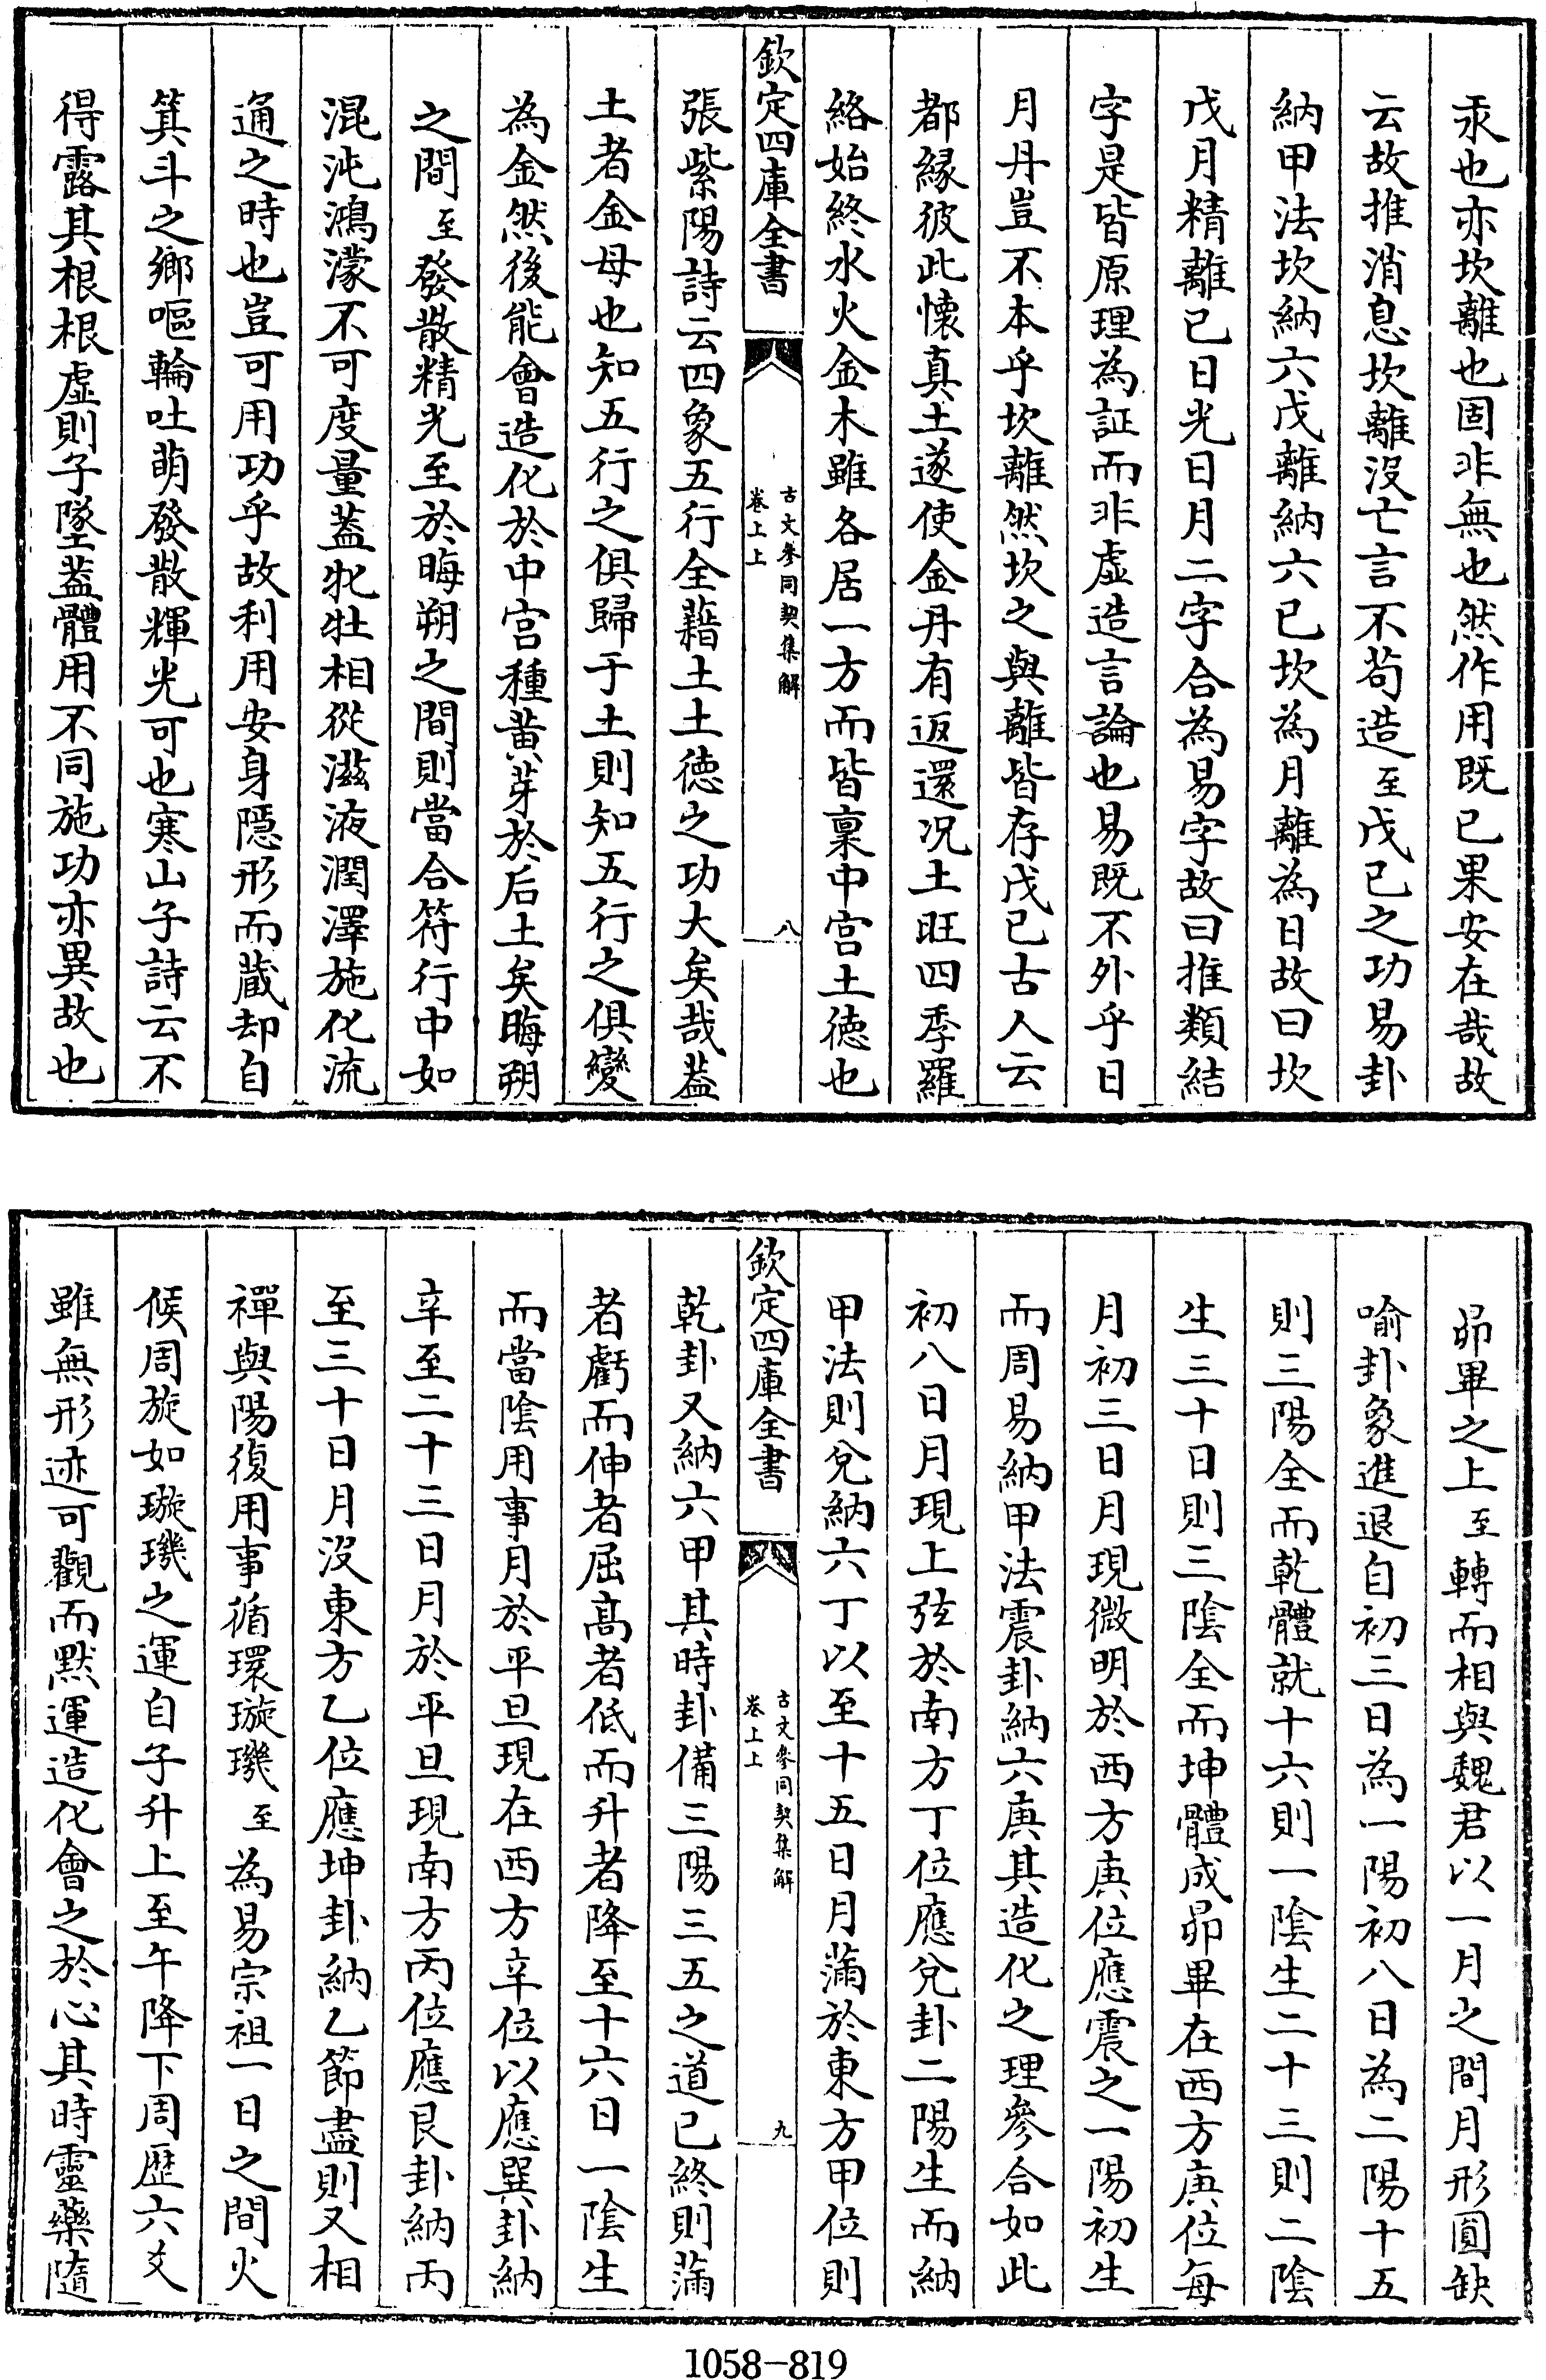 汞也亦坎離也固非無也然作用既已果安在哉故
云故推消息坎離沒亡言不苟造至戊已之功易卦
納甲法坎納六戊離納六已坎為月離為日故曰坎
戊月精離已日光日月二字合為易字故曰推類結
字是皆原理為証而非虛造言論也易既不外乎日
月丹豈不本乎坎離然坎之與離皆存戊已古人云
都緣彼此懷真土遂使金丹有返還况土旺四季羅
絡始終水火金木雖各居一方而皆稟中宫土徳也
欽定四庫全書
古文參同契集解
卷上上
八
張紫陽詩云四象五行全藉土土徳之功大矣哉葢
土者金母也知五行之俱歸于土則知五行之俱變
為金然後能會造化於中宫種黄芽於后土矣晦朔
之間至發散精光至於晦朔之間則當合符行中如
混沌鴻濛不可度量葢牝牡相從滋液潤澤施化流
通之時也豈可用功乎故利用安身隱形而藏却自
箕斗之鄉嘔輪吐萌發散輝光可也寒山子詩云不
得露其根根虛則子墜葢體用不同施功亦異故也
昴畢之上至轉而相與魏君以一月之間月形圓缺
喻卦象進退自初三日為一陽初八日為二陽十五
則三陽全而乾體就十六則一陰生二十三則二陰
生三十日則三陰全而坤體成昴畢在西方庚位每
月初三日月現微明於西方庚位應震之一陽初生
而周易納甲法震卦納六庚其造化之理參合如此
初八日月現上弦於南方丁位應兌卦二陽生而納
甲法則兌納六丁以至十五日月滿於東方甲位則
欽定四庫全書
古文參同契集解
卷上上
九
乾卦又納六甲其時卦備三陽三五之道已終則滿
者虧而伸者屈高者低而升者降至十六日一陰生
而當陰用事月於平旦現在西方辛位以應巽卦納
辛至二十三日月於平旦現南方丙位應艮卦納丙
至三十日月沒東方乙位應坤卦納乙節盡則又相
禪與陽復用事循環璇璣至為易宗祖一日之間火
候周旋如璇璣之運自子升上至午降下周歷六爻
雖無形迹可觀而黙運造化會之於心其時靈藥隨
1058-819